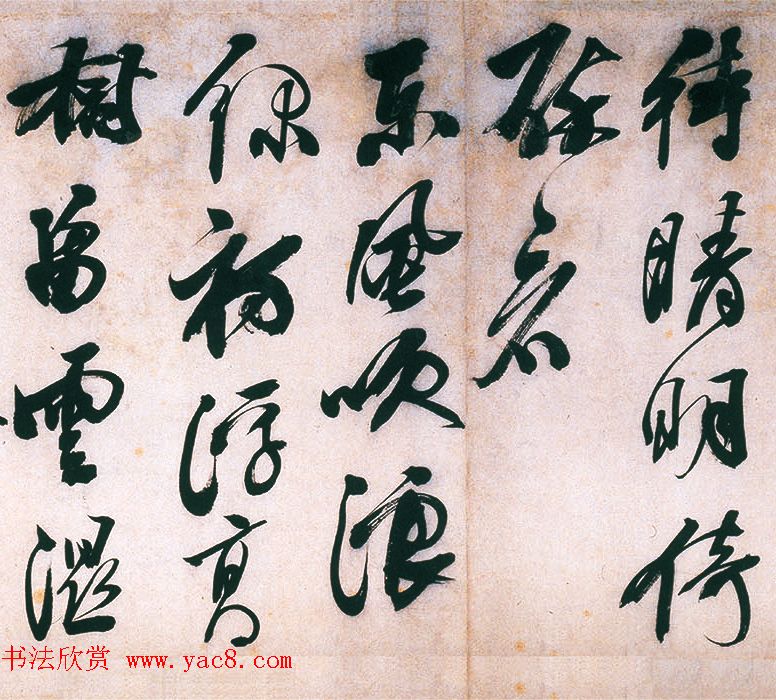 待晴明倚
東風吹浪
綠初浮高
樹留雲濕
书法欣赏 www.yac8.com